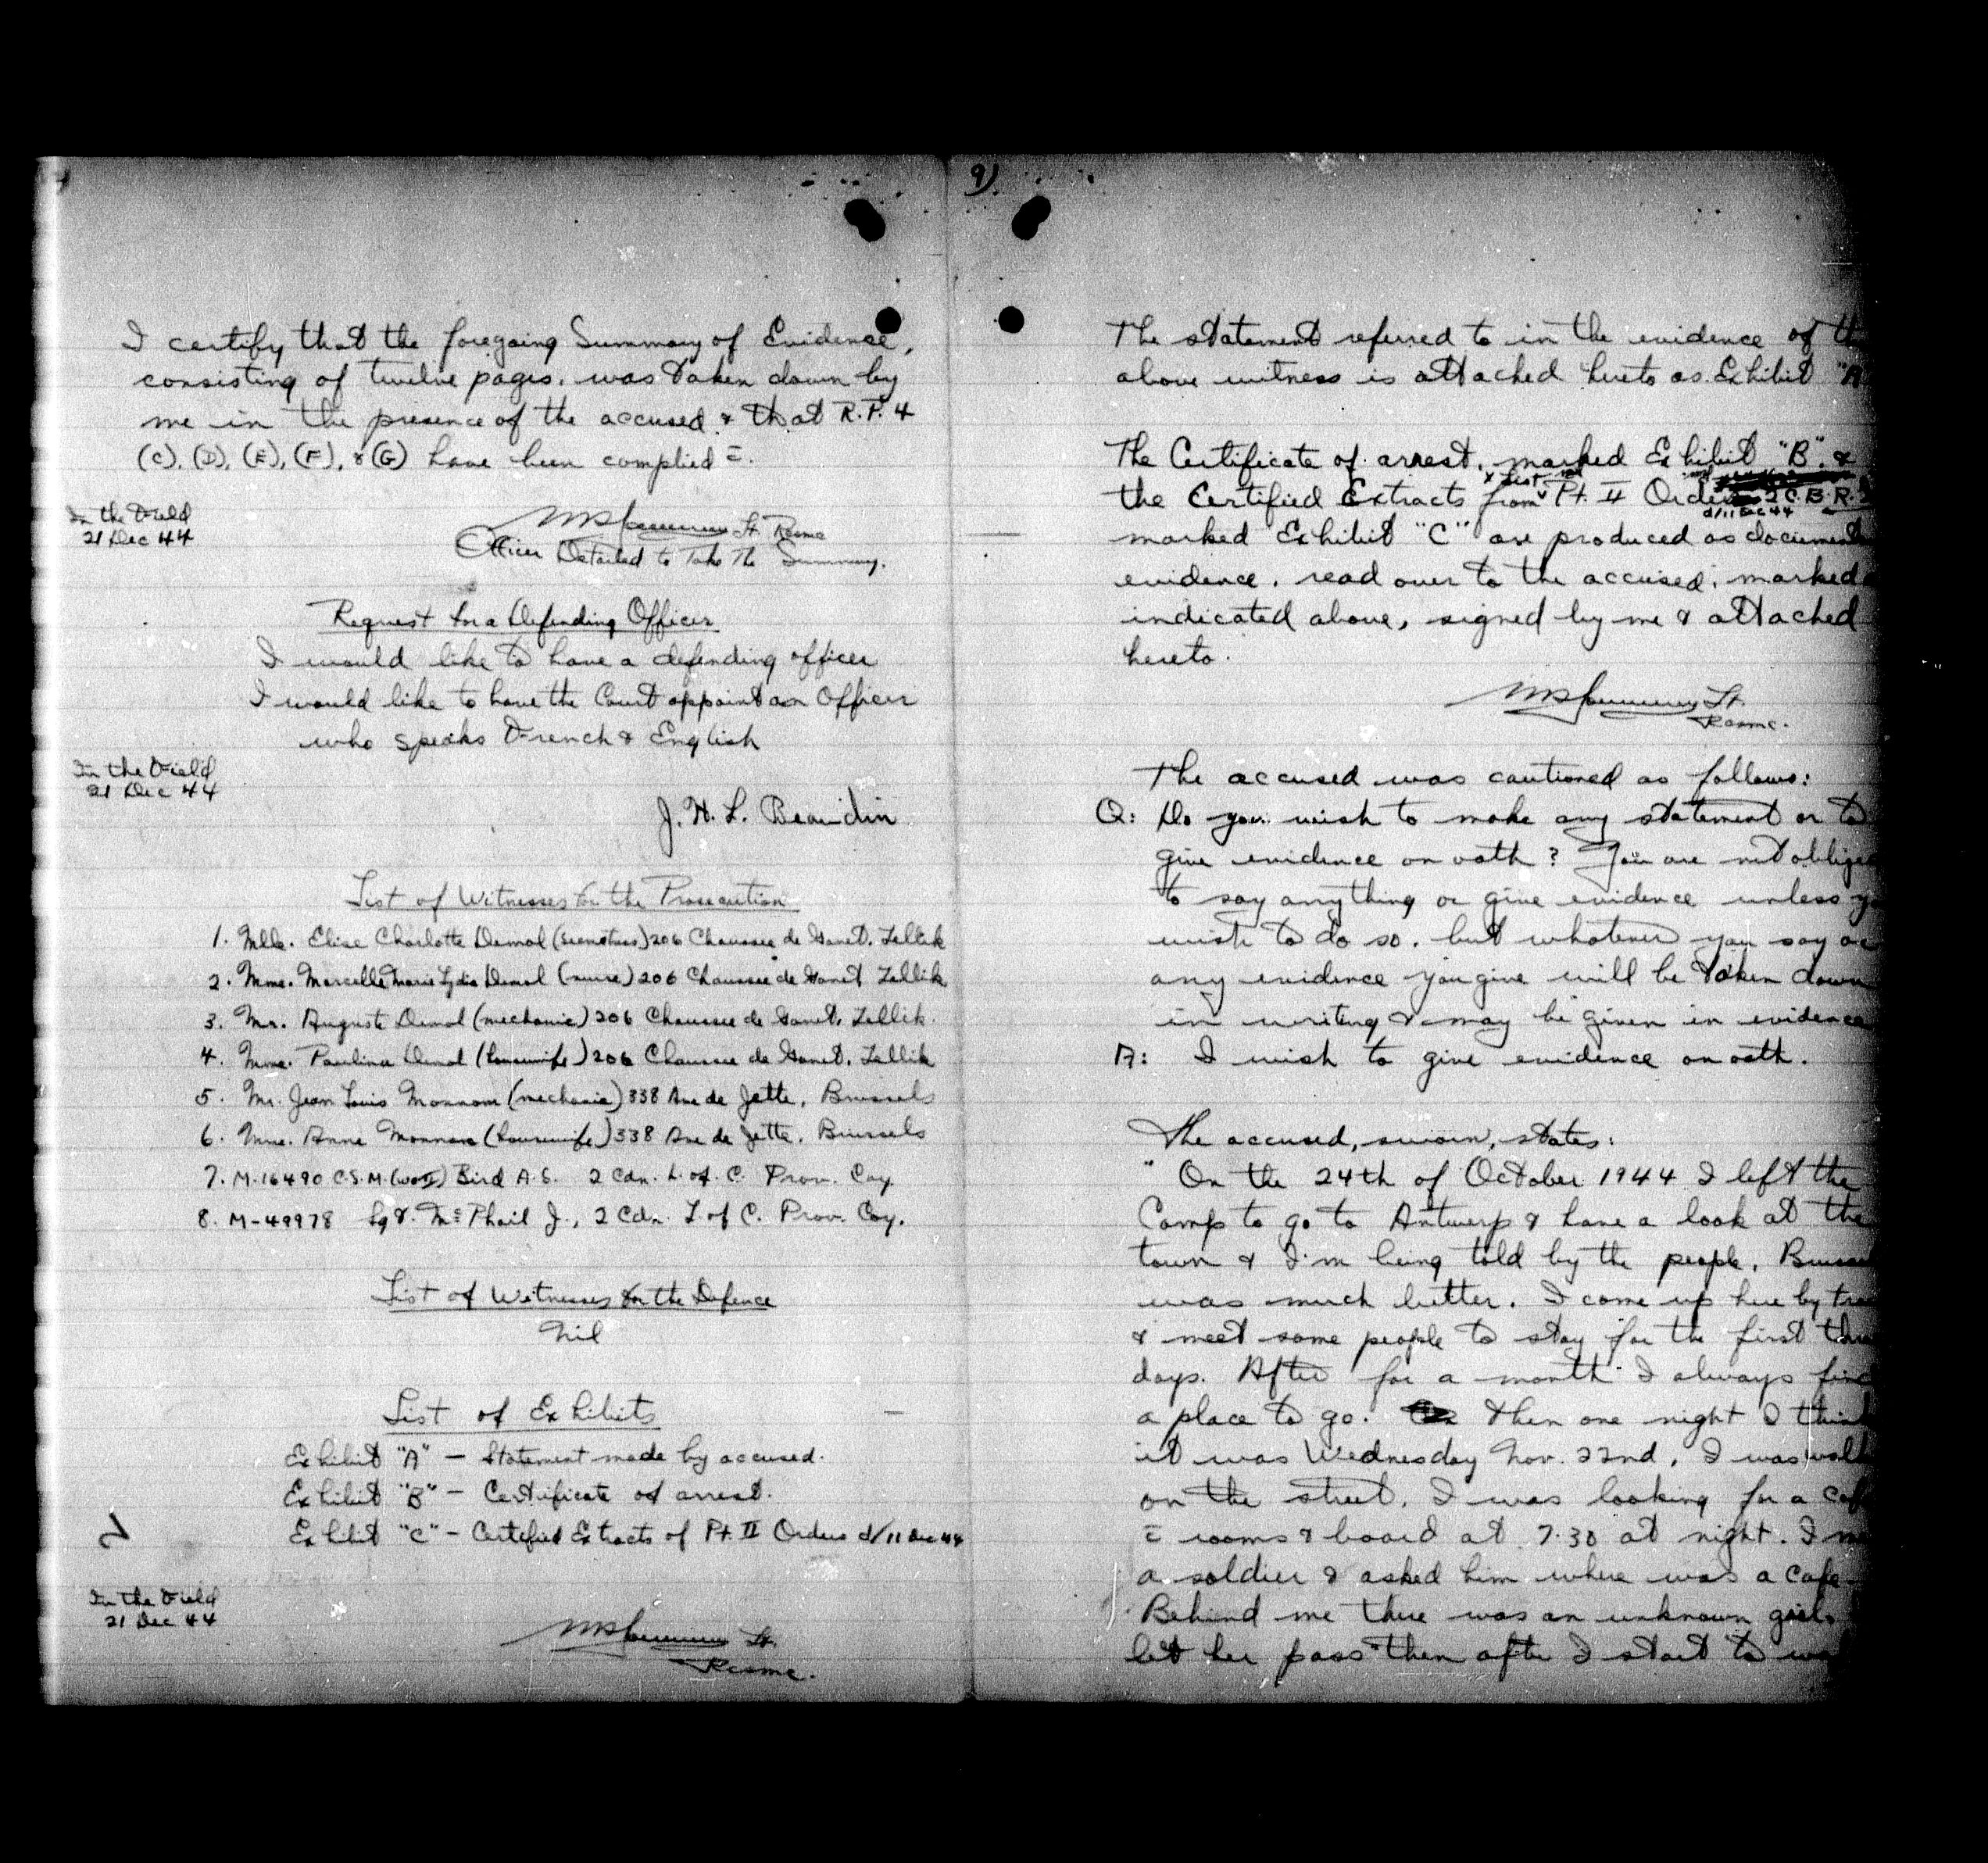 I certify that the foregoing Summary of Evidence,
consisting of twelve pages, was taken down by
me in the presence of the accused & that R.P. 4
(C), (D), (E), (F), & (G) have been complied c̄.
In the Field
21 Dec 44
Lt. Rcame
Officer Detailed to Take The Summary.
Request for a Defending Officer
I would like to have a defending officer
I would like to have the Court appoint an Officer
who speaks French & English
In the Field
21 Dec 44
J. H. L. Beaudin
List of Witnesses for the Prosecution
1. Mlle. Elise Charlotte Demol (seamstress) 206 Chaussee de Gand, Zellik
2. Mme. Marcelle Marie Lydia Demol (nurse) 206 Chaussee de Gand Zellik
3. Mr. Auguste Demol (mechanic) 206 Chaussee de Gand, Zellik.
4. Mme. Pauline Demol (housewife) 206 Chaussee de Gand, Zellik
5. Mr. Jean Louis Monnom (mechanic) 338 Ave de Jette, Brussels
6. Mme. Anne Monnom (housewife) 338 Ave de Jette, Brussels
7. M-16490 C.S.M. (WOII) Bird A.S. 2 Cdn. L. of. C. Prov. Coy
8. M-49978 Sgt. McPhail J., 2 Cdn. L of C. Prov. Coy.
List of Witnesses for the Defence
Nil
List of Exhibits
Exhibit "A" - Statement made by accused.
Exhibit "B" - Certificate of arrest.
Exhibit "C" - Certified Extracts of Pt. II Orders d/11 Dec 44
In the Field
21 Dec 44
Lt.
Rcame.
9)
The statement referred to in the evidence of
above witness is attached hereto as Exhibit "A
The Certificate of arrest, marked Exhibit "B" &
the Certified Extracts from Pt. II Orders 2 C.B.R.
d/11 Dec 44
marked Exhibit "C" are produced as
evidence, read over to the accused, marked
indicated above, signed by me & attached
hereto.
Lt.
Rcame.
The accused was cautioned as follows:
Q: Do you wish to make any statement or to
give evidence on oath? You are not
to say anything or give evidence unless
wish to do so, but whatever you say or
any evidence you give will be taken down
in writing & may be given in evidence
A: I wish to give evidence on oath.
The accused, sworn, states:
"On the 24th of October 1944 I left the
Camp to go to Antwerp & have a look at the
town & I'm being told by the people,
was much better. I come up here by
& meet some people to stay for the first
days. After for a month I always
a place to go. Then one night I
it was Wednesday Nov. 22nd, I was
on the street, I was looking for a
c̄ rooms & board at 7.30 at night. I
a soldier & asked him where was a cafe
Behind me there was an unknown girl
let her pass then after I start to